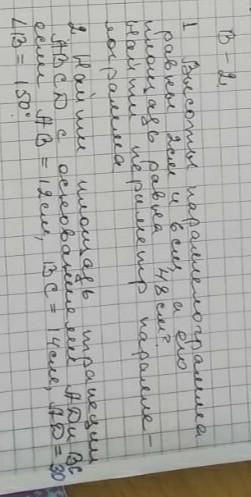 В-2.
1 Высоты параллелограмма
равны 2см и 6см, а его
площадь равна 48 см²
Найти периметр паралле-
лограмма
2 Найти площадь трапеции
ABCD с основаниями AD и BC
если AB = 12см, BC = 14см, AD = 30
∠B = 150°.